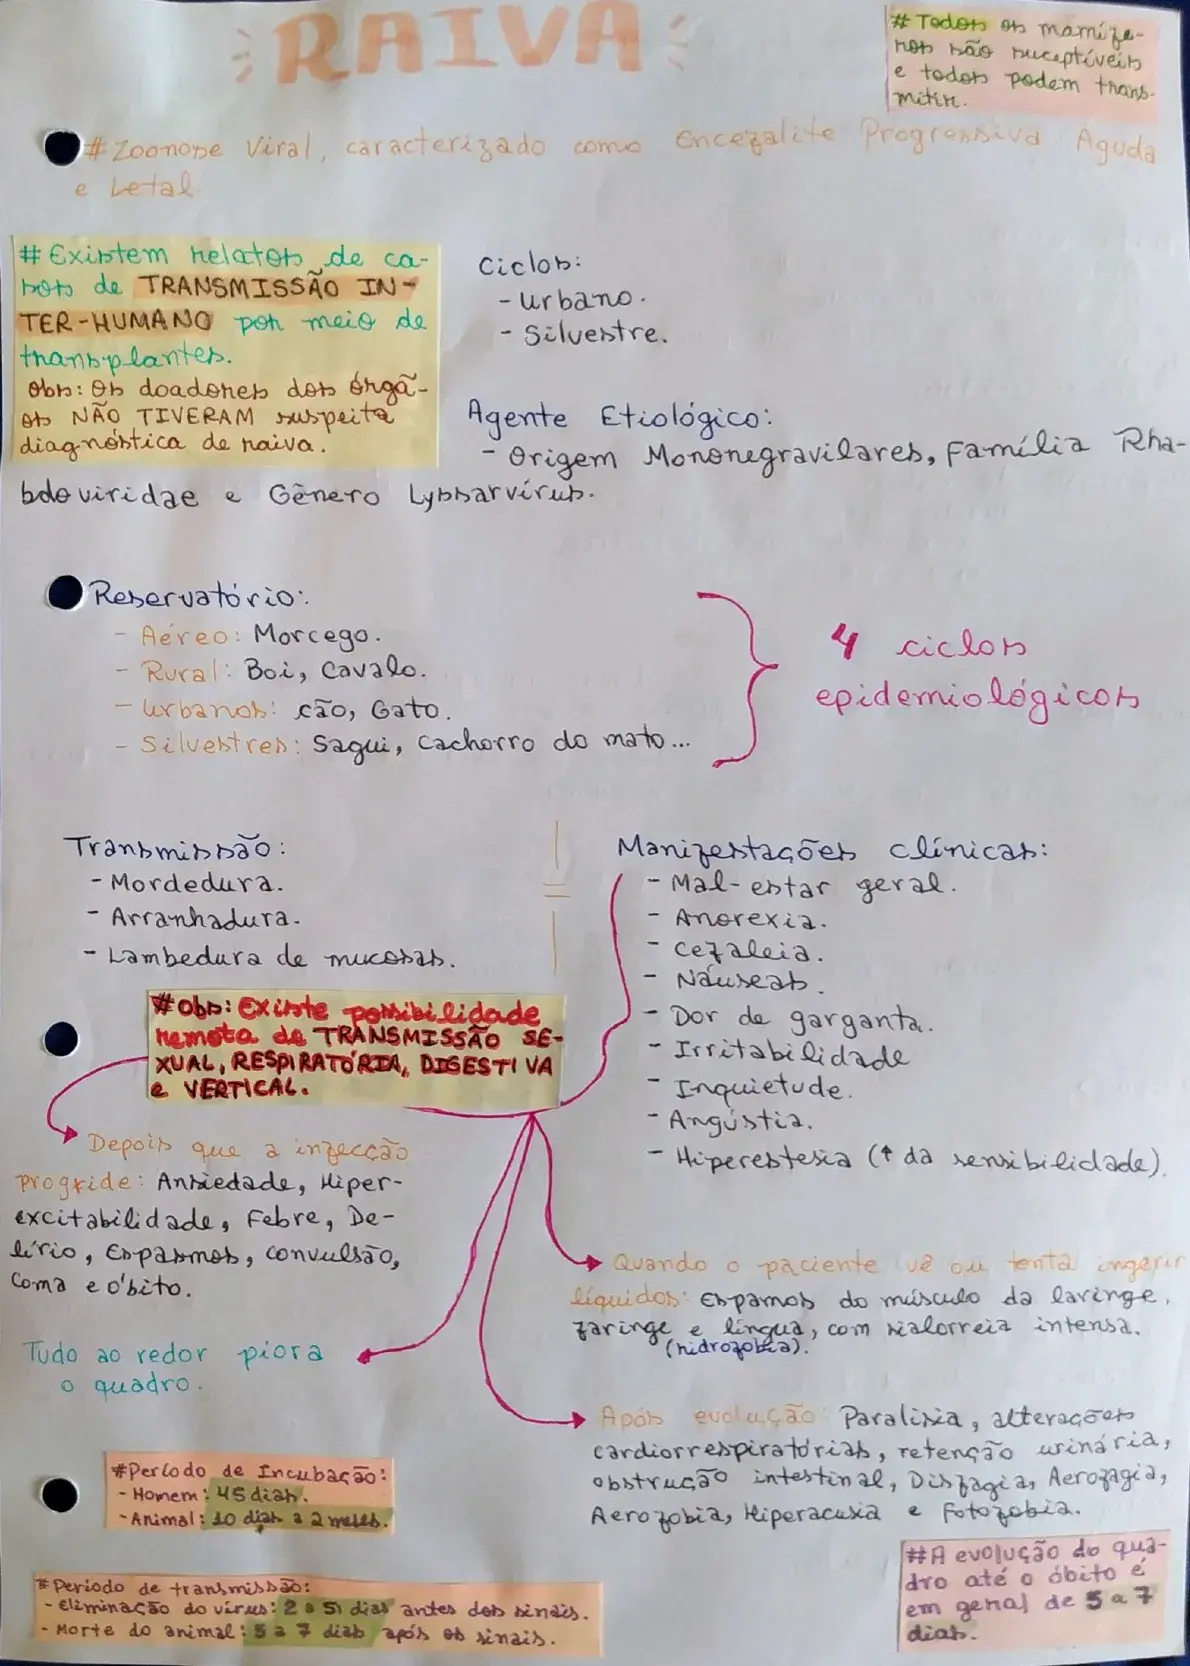 RAIVA
# Todos os mamífe-
ros são suceptíveis
e todos podem trans-
mitir.
# Zoonose Viral, caracterizado como Encefalite Progressiva Aguda
e Letal.
# Existem relatos de ca-
sos de TRANSMISSÃO IN-
TER-HUMANO por meio de
transplantes.
Obs: Os doadores dos órgã-
os NÃO TIVERAM suspeita
diagnóstica de raiva.
Ciclos:
- Urbano.
- Silvestre.
Agente Etiológico:
- Origem Mononegravilares, Família Rha-
bdoviridae e Gênero Lyssarvírus.
Reservatório:
- Aéreo: Morcego.
- Rural: Boi, Cavalo.
- Urbanos: cão, Gato.
- Silvestres: Sagui, Cachorro do mato...
4 ciclos
epidemiológicos
Transmissão:
- Mordedura.
- Arranhadura.
- Lambedura de mucosas.
# Obs: Existe possibilidade
remota de TRANSMISSÃO SE-
XUAL, RESPIRATÓRIA, DIGESTIVA
e VERTICAL.
Manifestações clínicas:
- Mal-estar geral.
- Anorexia.
- Cefaleia.
- Náuseas.
- Dor de garganta.
- Irritabilidade
- Inquietude.
- Angústia.
- Hiperestesia (↑ da sensibilidade).
Depois que a infecção
progride: Ansiedade, Hiper-
excitabilidade, Febre, De-
lírio, Espasmos, convulsão,
Coma e óbito.
Tudo ao redor piora
o quadro.
Quando o paciente vê ou tenta ingerir
líquidos: Espamos do músculo da laringe,
faringe e língua, com sialorreia intensa.
(hidrofobia).
Após evolução: Paralisia, alterações
cardiorrespiratórias, retenção urinária,
obstrução intestinal, Disfagia, Aerofagia,
Aerofobia, Hiperacusia e Fotofobia.
# Período de Incubação:
- Homem: 45 dias.
- Animal: 10 dias a 2 meses.
# Período de transmissão:
- Eliminação do vírus: 2 a 5 dias antes dos sinais.
- Morte do animal: 5 a 7 dias após os sinais.
# A evolução do qua-
dro até o óbito é
em geral de 5 a 7
dias.